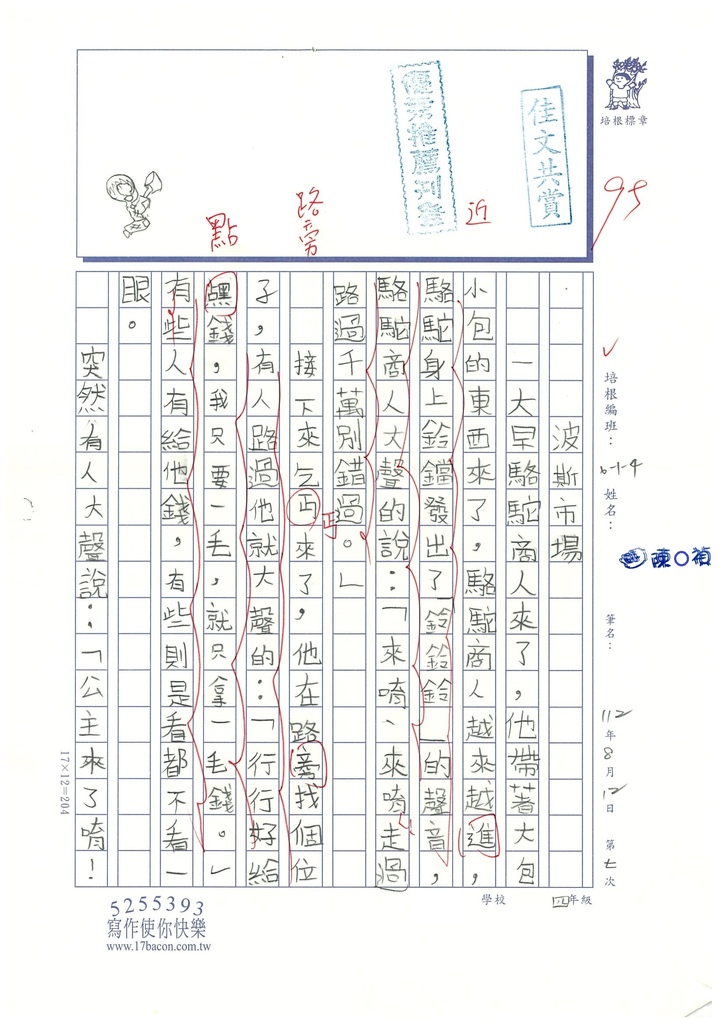 培根標章
佳文共賞
95
近
優秀推薦刊登
路旁
點
培根編班：6-1-4 姓名：陳〇禎 筆名： 112年8月12日 第七次
四年級
學校
波斯市場
一大早駱駝商人來了，他帶著大包
小包的東西來了，駱駝商人越來越進，
駱駝身上鈴鐺發出了「鈴鈴鈴」的聲音，
駱駝商人大聲的說：「來唷、來唷走過
路過千萬別錯過。」
接下來乞丏來了，他在路旁找個位
丐
子，有人路過他就大聲的：「行行好給
錢，我只要一毛，就只拿一毛錢。」
有些人有給他錢，有些則是看都不看一
眼。
突然有人大聲說：「公主來了唷！
17×12=204
5255393
寫作使你快樂
www.17bacon.com.tw